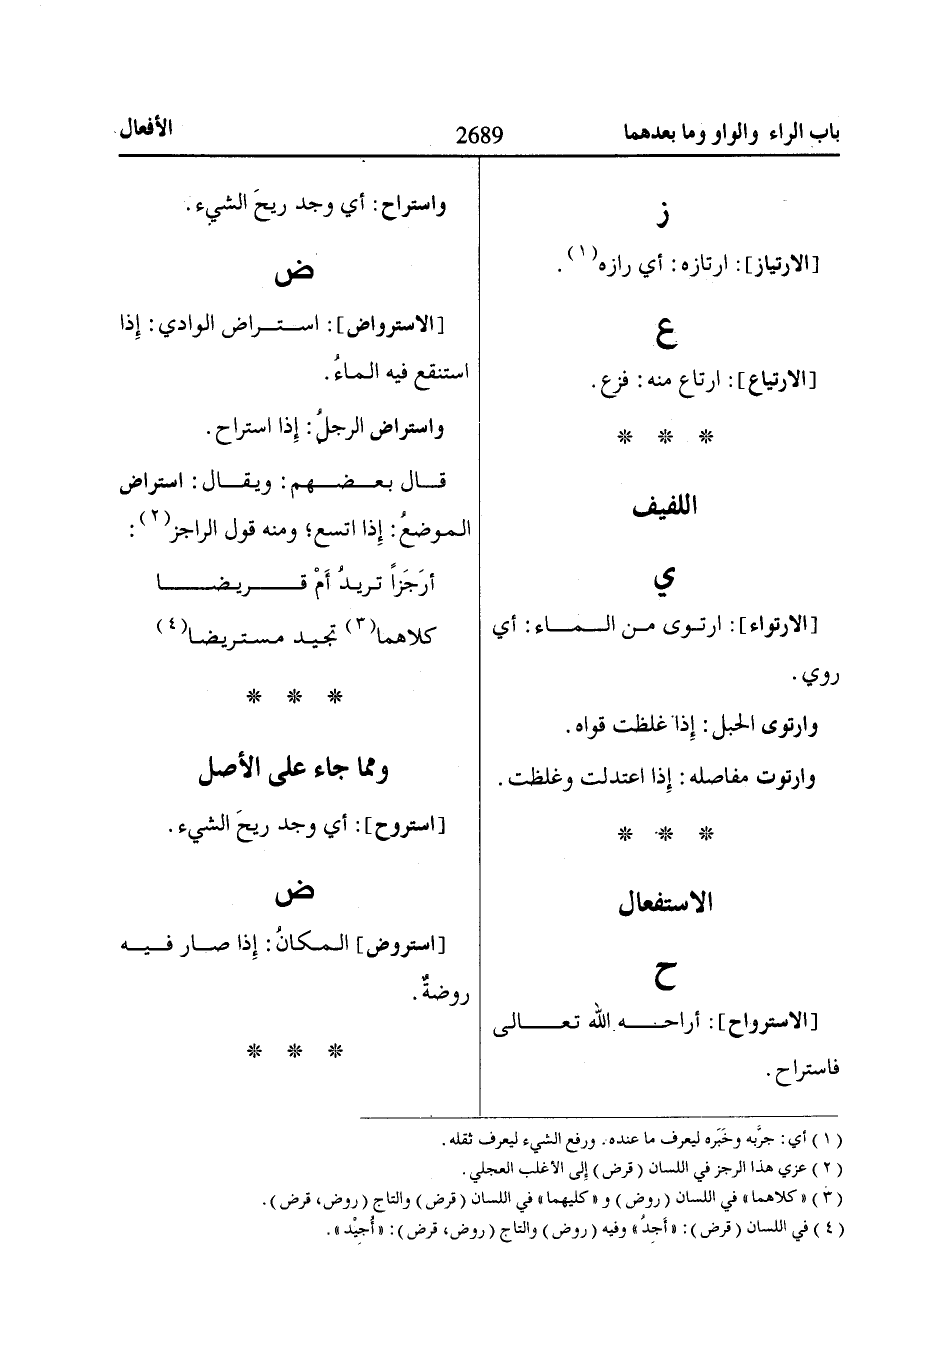 باب الراء والواو وما بعدهما
2689
الأفعال
ز
[الارتياز]: ارتازه: أي رازه(١).
ع
[الارتياع]: ارتاع منه: فزع.
* * *
اللفيف
ي
[الارتواء]: ارتوى من الماء: أي
روي.
وارتوى الحبل: إذا غلظت قواه.
وارتوت مفاصله: إذا اعتدلت وغلظت.
* * *
الاستفعال
ح
[الاسترواح]: أراحه الله تعالى
فاستراح.
واستراح: أي وجد ريحَ الشيء.
ض
[الاسترواض]: استراض الوادي: إذا
استنقع فيه الماءُ.
واستراض الرجلُ: إذا استراح.
قال بعضهم: ويقال: استراض
الموضعُ: إذا اتسع؛ ومنه قول الراجز(٢):
أرَجَزاً تريدُ أمْ قريضا
كلاهما(٣) تجيد مستريضا(٤)
* * *
ومما جاء على الأصل
[استروح]: أي وجد ريحَ الشيء.
ض
[استروض] المكانُ: إذا صار فيه
روضةٌ.
* * *
(١) أي: جرَّبه وخَبَره ليعرف ما عنده. ورفع الشيء ليعرف ثقله.
(٢) عزي هذا الرجز في اللسان (قرض) إلى الأغلب العجلي.
(٣) «كلاهما» في اللسان (روض) و «كليهما» في اللسان (قرض) والتاج (روض، قرض).
(٤) في اللسان (قرض): «أجدُ» وفيه (روض) والتاج (روض، قرض): «أُجيْد».